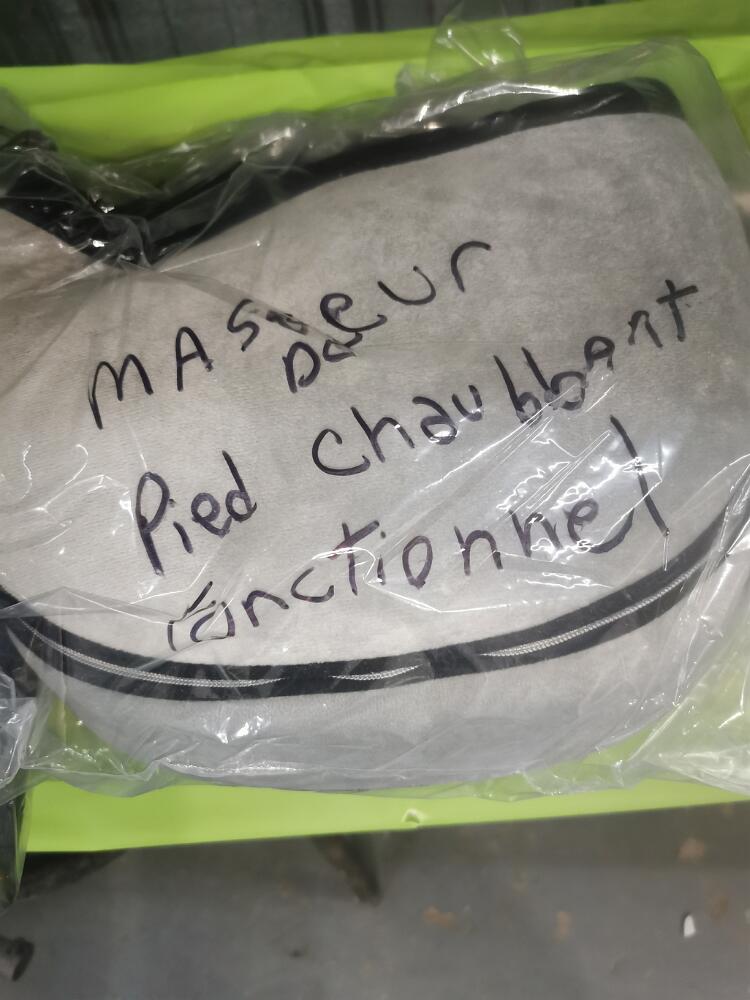 MASSeur
De
Pied chaubbant
fonctionnel